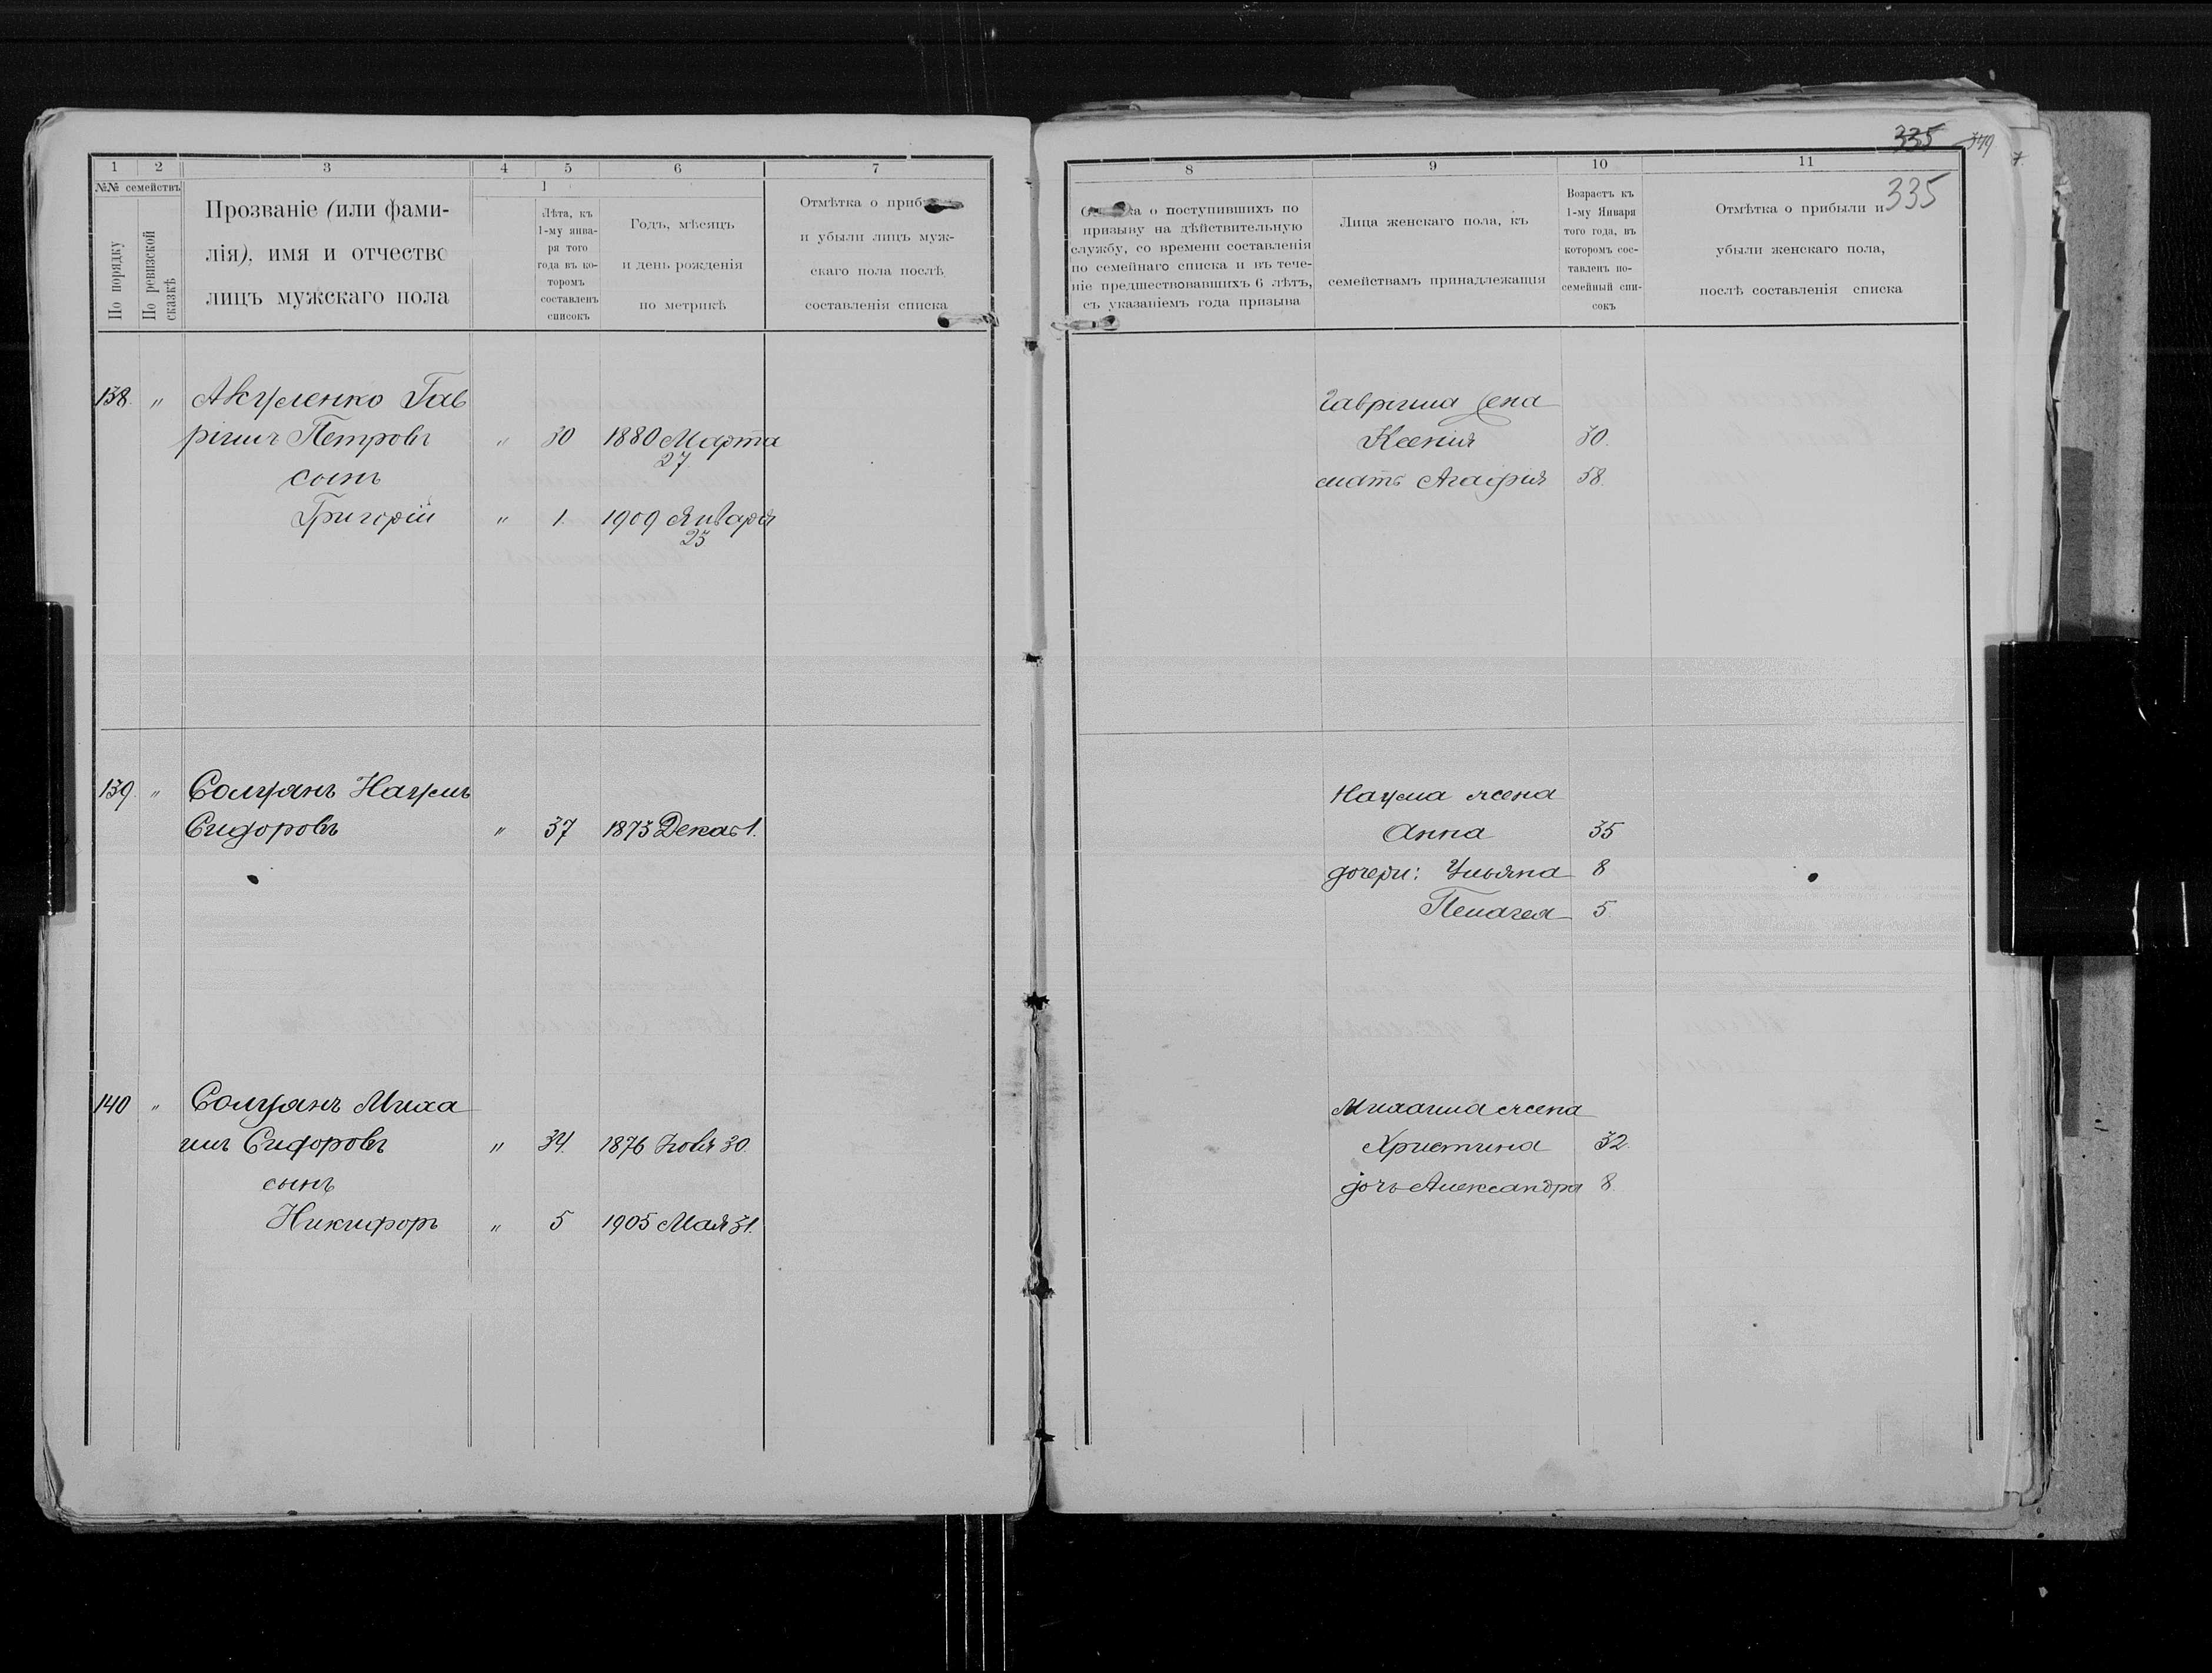 335 349
7
1 2 3 4 5 6 7
№№ семействъ
По порядку
По ревизской сказкѣ
Прозваніе (или фами-
лія), имя и отчество
лицъ мужскаго пола
1
Лѣта, къ
1-му янва-
ря того
года въ ко-
торомъ
составленъ
списокъ
Годъ, мѣсяцъ
и день рожденія
по метрикѣ
Отмѣтка о приб
и убыли лицъ муж-
скаго пола послѣ
составленія списка
138 " Акуленко Гав
ріилъ Петровъ " 30 1880 Марта
27
сынъ
Григорій " 1 1909 Января
23
139 " Солуянъ Наумъ
Сидоровъ " 37 1873 Декаб 1.
140 " Солуянъ Миха
илъ Сидоровъ " 34. 1876 Нояб 30.
сынъ
Никифоръ " 5 1905 Мая 31.
8 9 10 11
о поступившихъ по
призыву на дѣйствительную
службу, со времени составленія
по семейнаго списка и въ тече-
ніе предшествовавшихъ 6 лѣтъ,
съ указаніемъ года призыва
Лица женскаго пола, къ
семействамъ принадлежащія
Возрастъ къ
1-му Января
того года, въ
которомъ сос-
тавленъ по-
семейный спи-
сокъ
Отмѣтка о прибыли и
убыли женскаго пола,
послѣ составленія списка
335
Гавріила жена
Ксенія 30.
мать Агафія 58.
Наума жена
Анна 35
дочери: Ульяна 8
Пелагея 5.
Михаила жена
Христина 32.
дочь Александра 8.